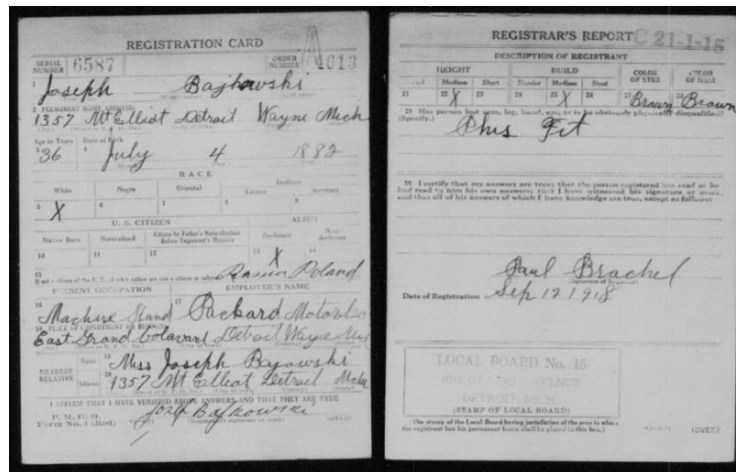 REGISTRATION CARD
SERIAL NUMBER 6587 ORDER NUMBER 4613
1 Joseph Bajkowski
2 PERMANENT HOME ADDRESS:
1357 Mt Elliot Detroit Wayne Mich
Age in Years Date of Birth
3 36 4 July 4 1882
RACE
White Negro Oriental Indian
Citizen Noncitizen
5 X 6 7 8 9
U. S. CITIZEN ALIEN
Native Born Naturalized Citizen by Father's Naturalization Before Registrant's Majority Declarant Non-declarant
10 11 12 13 X 14
15 If not a citizen of the U. S., of what nation are you a citizen or subject? Russia Poland
PRESENT OCCUPATION EMPLOYER'S NAME
16 Machine Hand 17 Packard Motor Co
18 PLACE OF EMPLOYMENT OR BUSINESS
East Grand Detroit Wayne
NEAREST RELATIVE Name 19 Miss Joseph Bajowski
Address 20 1357 Mt Elliot Detrait Mich
I AFFIRM THAT I HAVE VERIFIED ABOVE ANSWERS AND THAT THEY ARE TRUE
P. M. G. O.
Form No. 1 (Red) Josef Bajkowski (OVER)
REGISTRAR'S REPORT C 21-1-15
DESCRIPTION OF REGISTRANT
HEIGHT BUILD COLOR OF EYES COLOR OF HAIR
Medium Short Slender Medium Stout
21 22 X 23 24 25 X 26 27 Brown 28 Brown
29 Has person lost arm, leg, hand, eye, or is he obviously physically disqualified?
(Specify.) Phis Fit
30 I certify that my answers are true; that the person registered has read or has had read to him his own answers; that I have witnessed his signature or mark, and that all of his answers of which I have knowledge are true, except as follows:
Paul Brachel
(Signature of Registrar)
Date of Registration Sep 12 1918
LOCAL BOARD No. 15
AVENUE
DETROIT, MICH.
(STAMP OF LOCAL BOARD)
(The stamp of the Local Board having jurisdiction of the area in which the registrant has his permanent home shall be placed in this box.) (OVER)